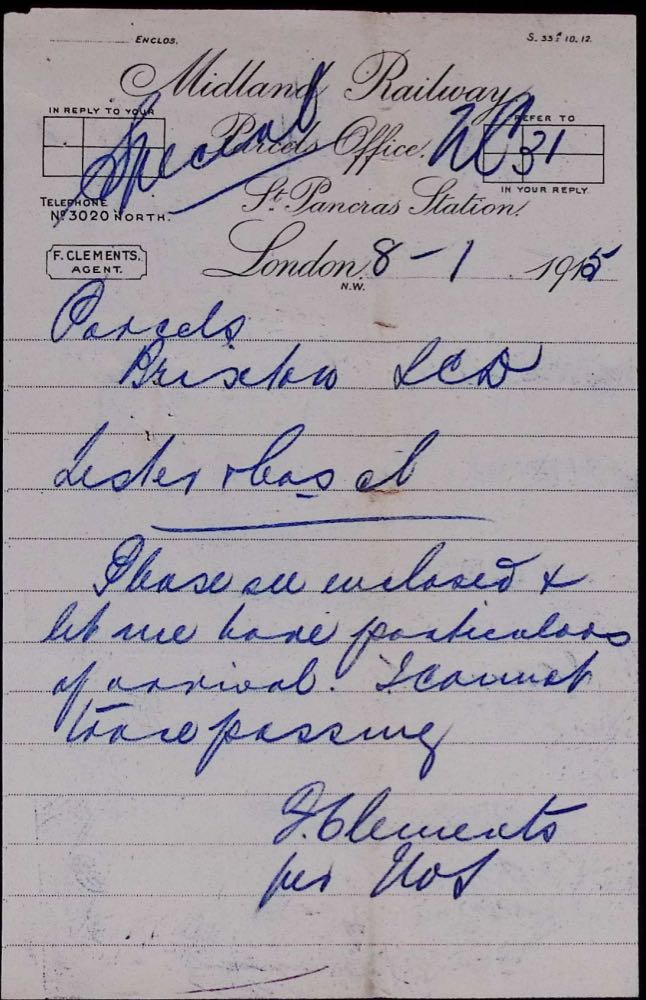 ENCLOS.
S. 33 10.12.
Midland Railway
IN REPLY TO YOUR
REFER TO
Special
Parcels Office.
31
IN YOUR REPLY.
TELEPHONE
Nº 3020 NORTH.
St Pancras Station.
F. CLEMENTS.
AGENT.
London, 8-1 1915
N.W.
Parcels
Brixton LCD
Please see enclosed &
let me have particulars
of arrival. I cannot
trace passing
F. Clements
per